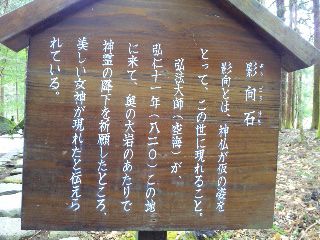 影向石
ようごうせき
影向とは、神仏が仮の姿を
とって、この世に現れること。
弘法大師（空海）が、
弘仁十一年（八二〇）この地
に来て、奥の大岩のあたりで
神霊の降下を祈願したところ、
美しい女神が現れたと伝えら
れている。